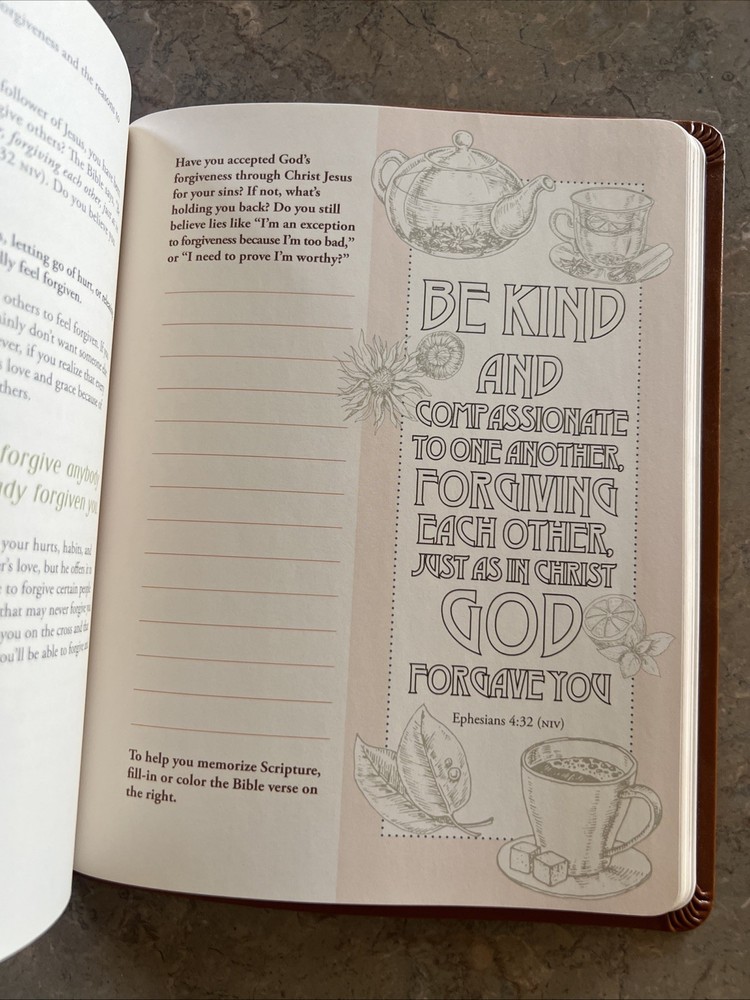 orgiveness and the reasons to
follower of Jesus, you have
give others? The Bible says,
forgiving each other, just
32 NIV). Do you believe you
letting go of hurt, or
lly feel forgiven.
others to feel forgiven. If
ainly don't want someone
ver, if you realize that every
love and grace because of
thers.
forgive anybody
ady forgiven you
your hurts, habits, and
r's love, but he offers it
e to forgive certain people
that may never forgive
you on the cross and
ou'll be able to forgive
Have you accepted God's
forgiveness through Christ Jesus
for your sins? If not, what's
holding you back? Do you still
believe lies like “I'm an exception
to forgiveness because I'm too bad,”
or “I need to prove I'm worthy?”
To help you memorize Scripture,
fill-in or color the Bible verse on
the right.
BE KIND
AND
COMPASSIONATE
TO ONE ANOTHER,
FORGIVING
EACH OTHER,
JUST AS IN CHRIST
GOD
FORGAVE YOU
Ephesians 4:32 (NIV)